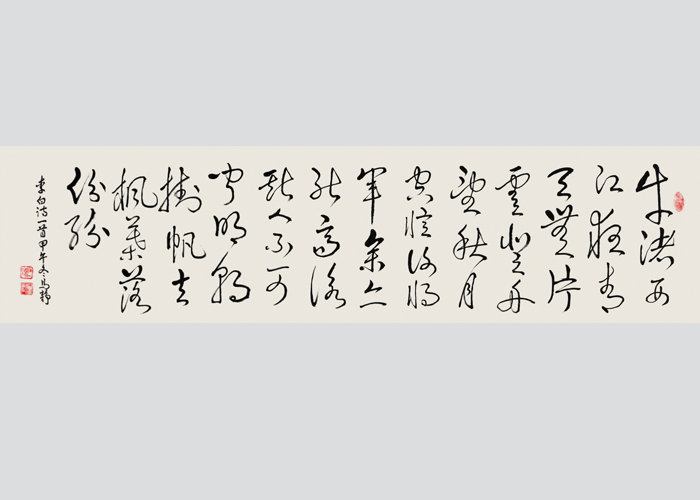 牛渚西
江夜青
天無片
雲登舟
望秋月
空憶谢将
軍余亦
能高詠
斯人不可
聞明朝
掛帆去
楓葉落
纷纷
李白诗一首甲午冬